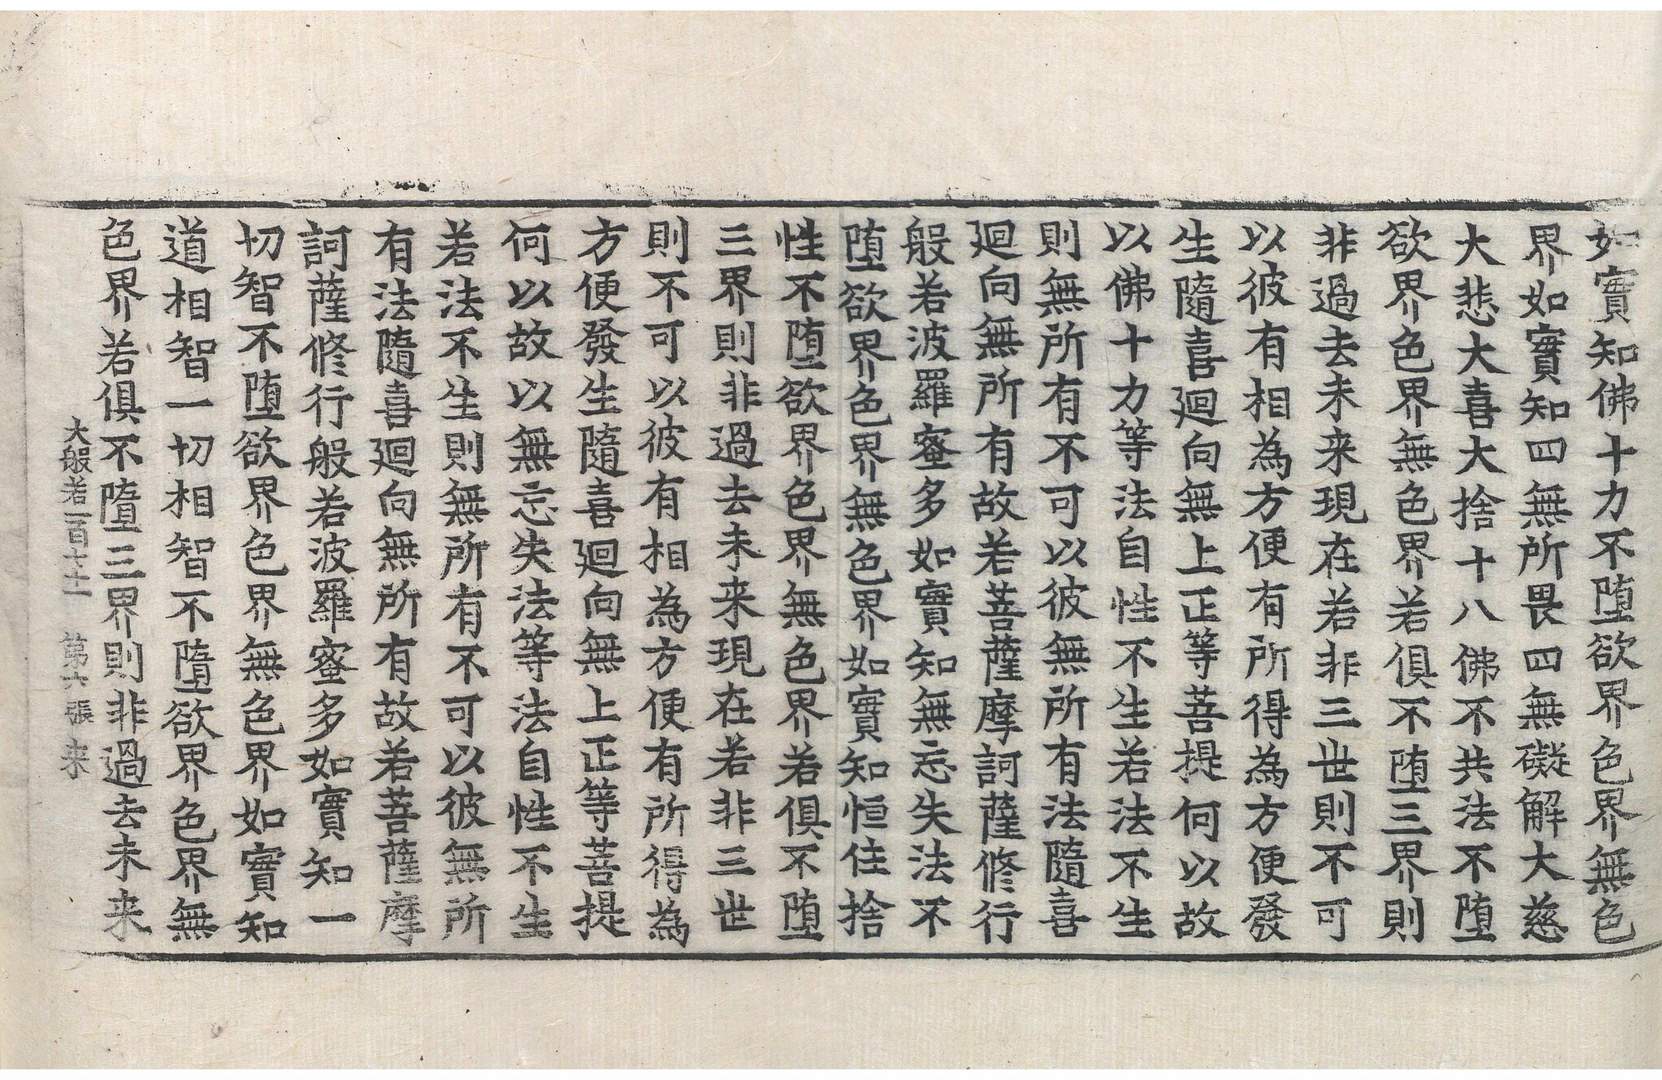 如實知佛十力不堕欲界色界無色
界如實知四無所畏四無礙解大慈
大悲大喜大捨十八佛不共法不堕
欲界色界無色界若俱不堕三界則
非過去未来現在若非三世則不可
以彼有相為方便有所得為方便發
生隨喜廻向無上正等菩提何以故
以佛十力等法自性不生若法不生
則無所有不可以彼無所有法隨喜
廻向無所有故若菩薩摩訶薩修行
般若波羅蜜多如實知無忘失法不
堕欲界色界無色界如實知恒住捨
性不堕欲界色界無色界若俱不堕
三界則非過去未来現在若非三世
則不可以彼有相為方便有所得為
方便發生隨喜廻向無上正等菩提
何以故以無忘失法等法自性不生
若法不生則無所有不可以彼無所
有法隨喜廻向無所有故若菩薩摩
訶薩修行般若波羅蜜多如實知一
切智不堕欲界色界無色界如實知
道相智一切相智不墮欲界色界無
色界若俱不墮三界則非過去未来
大般若一百七十二 第六張 来